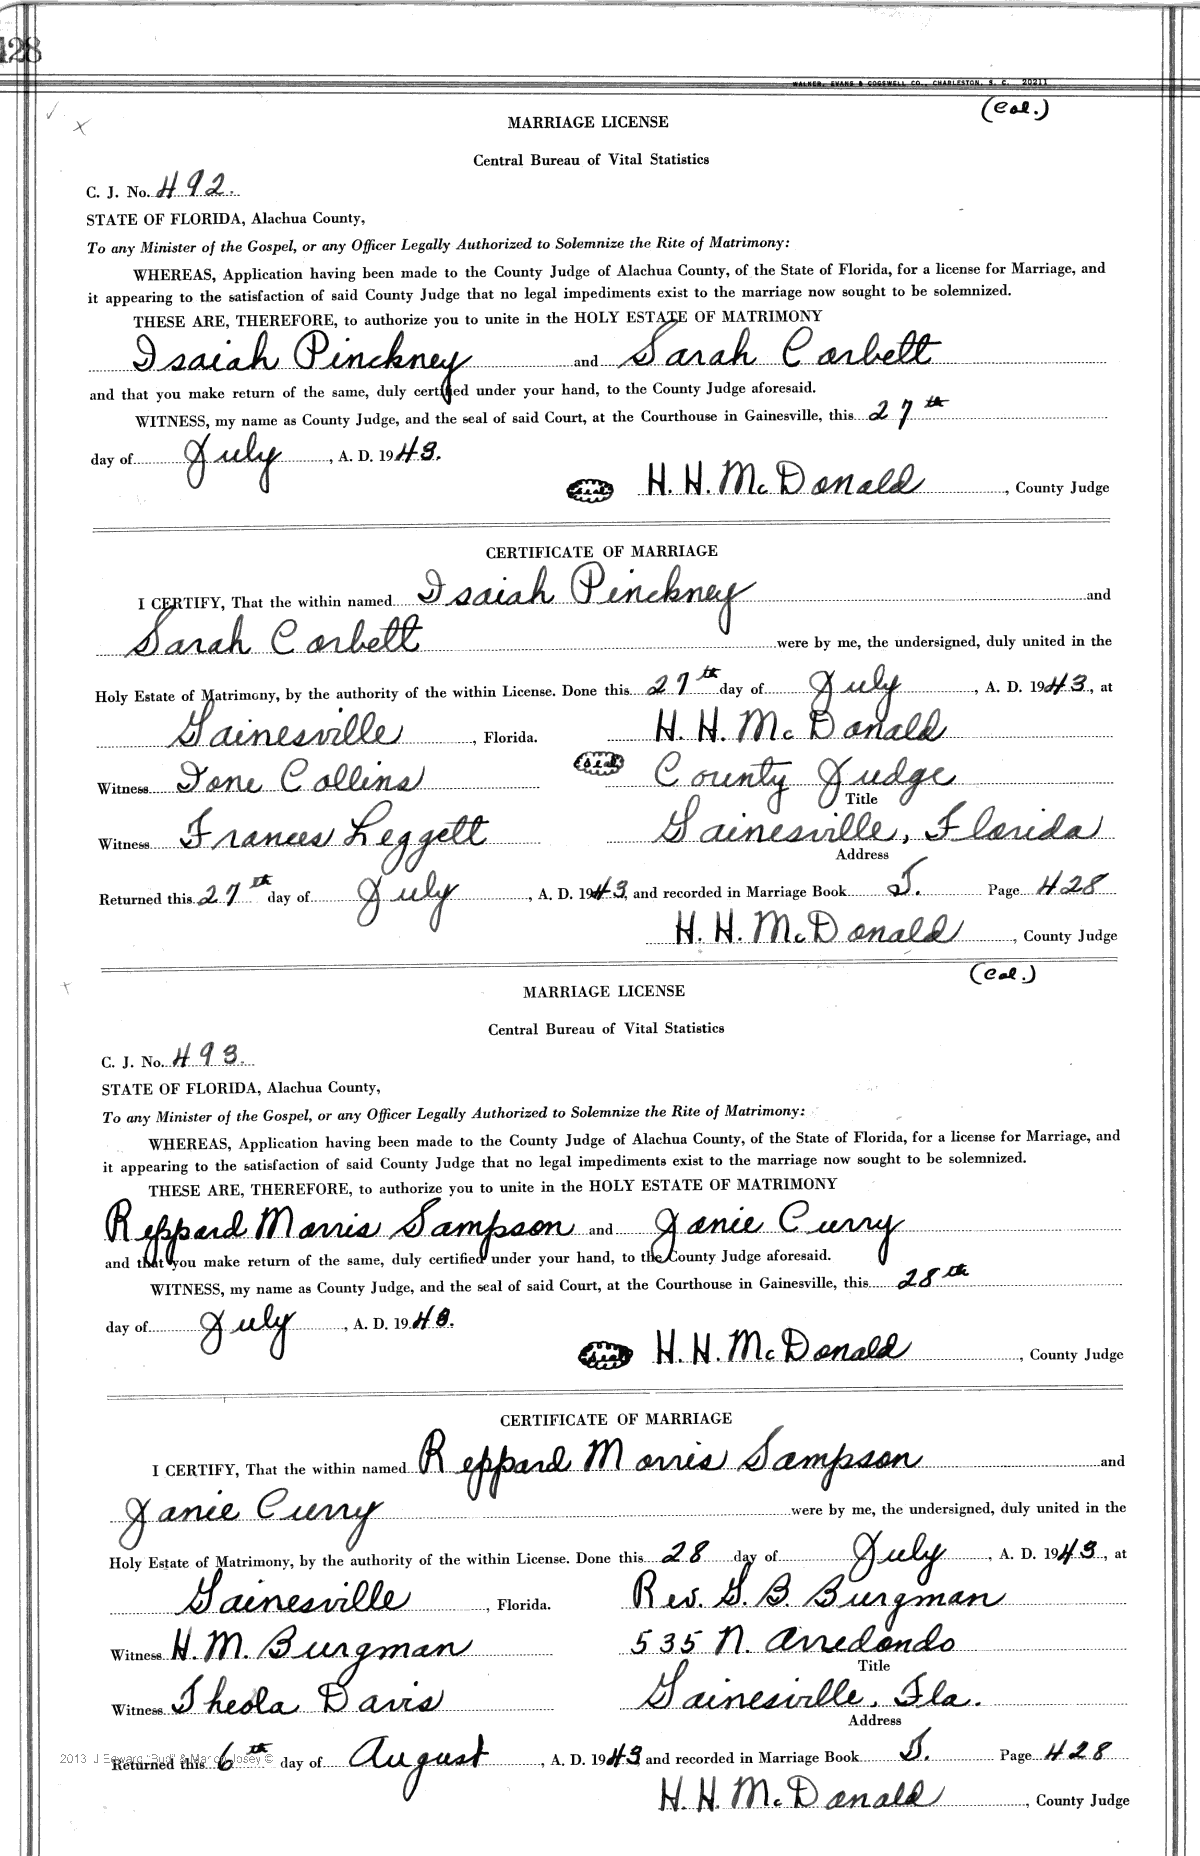 428
WALKER, EVANS & COGSWELL CO., CHARLESTON, S. C. 20211
(Col.)
MARRIAGE LICENSE
Central Bureau of Vital Statistics
C. J. No. 492.
STATE OF FLORIDA, Alachua County,
To any Minister of the Gospel, or any Officer Legally Authorized to Solemnize the Rite of Matrimony:
WHEREAS, Application having been made to the County Judge of Alachua County, of the State of Florida, for a license for Marriage, and
it appearing to the satisfaction of said County Judge that no legal impediments exist to the marriage now sought to be solemnized.
THESE ARE, THEREFORE, to authorize you to unite in the HOLY ESTATE OF MATRIMONY
Isaiah Pinckney and Sarah Corbett
and that you make return of the same, duly certified under your hand, to the County Judge aforesaid.
WITNESS, my name as County Judge, and the seal of said Court, at the Courthouse in Gainesville, this 27th
day of July, A. D. 1943.
(seal) H. H. McDonald, County Judge
CERTIFICATE OF MARRIAGE
I CERTIFY, That the within named Isaiah Pinckney and
Sarah Corbett were by me, the undersigned, duly united in the
Holy Estate of Matrimony, by the authority of the within License. Done this 27th day of July, A. D. 1943, at
Gainesville, Florida. H. H. McDonald
(seal) County Judge
Witness Ione Collins
Title
Witness Frances Leggett Gainesville, Florida
Address
Returned this 27th day of July, A. D. 1943, and recorded in Marriage Book J. Page 428
H. H. McDonald, County Judge
(Col.)
MARRIAGE LICENSE
Central Bureau of Vital Statistics
C. J. No. 493.
STATE OF FLORIDA, Alachua County,
To any Minister of the Gospel, or any Officer Legally Authorized to Solemnize the Rite of Matrimony:
WHEREAS, Application having been made to the County Judge of Alachua County, of the State of Florida, for a license for Marriage, and
it appearing to the satisfaction of said County Judge that no legal impediments exist to the marriage now sought to be solemnized.
THESE ARE, THEREFORE, to authorize you to unite in the HOLY ESTATE OF MATRIMONY
Reppard Morris Sampson and Janie Curry
and that you make return of the same, duly certified under your hand, to the County Judge aforesaid.
WITNESS, my name as County Judge, and the seal of said Court, at the Courthouse in Gainesville, this 28th
day of July, A. D. 1943.
(seal) H. H. McDonald, County Judge
CERTIFICATE OF MARRIAGE
I CERTIFY, That the within named Reppard Morris Sampson and
Janie Curry were by me, the undersigned, duly united in the
Holy Estate of Matrimony, by the authority of the within License. Done this 28 day of July, A. D. 1943, at
Gainesville, Florida. Rev. G. B. Burgman
Witness H. M. Burgman 535 N. Arredondo
Title
Witness Theola Davis Gainesville, Fla.
Address
2013 J Edward "Bud" & Marion Josey ©
Returned this 6th day of August, A. D. 1943, and recorded in Marriage Book J. Page 428
H. H. McDonald, County Judge